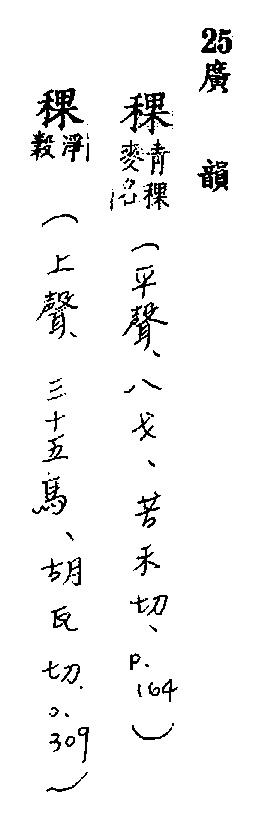 25廣韻
稞青稞麥名(平聲、八戈、苦禾切、p.164)
稞淨穀(上聲、三十五馬、胡瓦切、p.309)